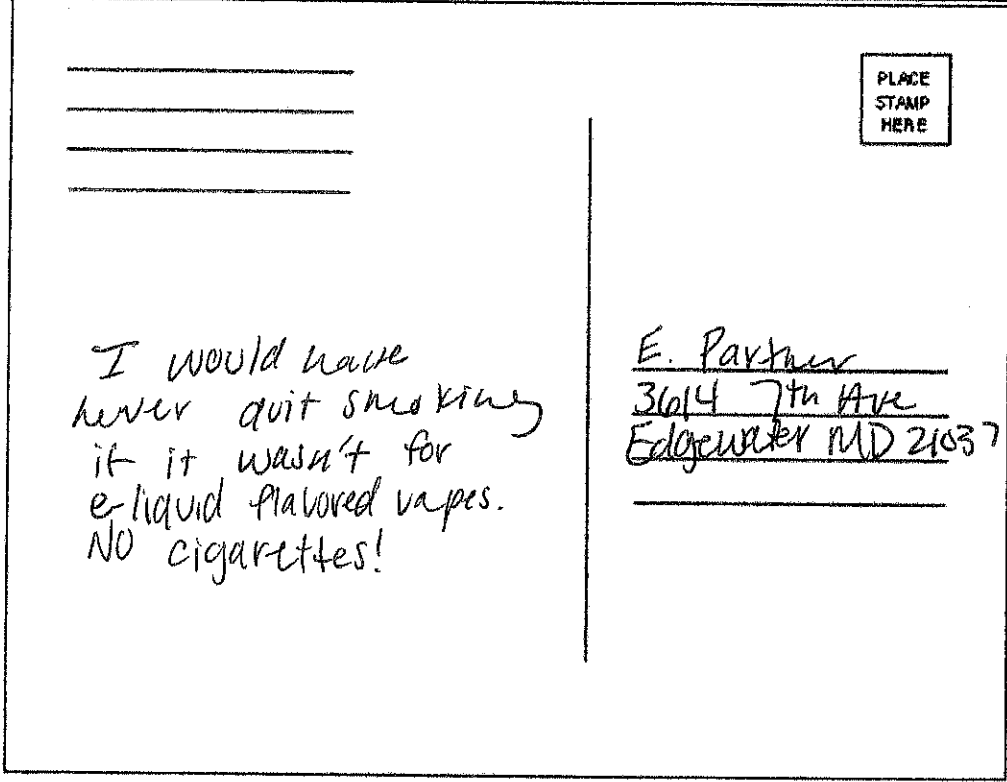 PLACE
STAMP
HERE
I would have
never quit smoking
if it wasn't for
e-liquid flavored vapes.
NO cigarettes!
E. Partner
3614 7th Ave
Edgewater MD 21037